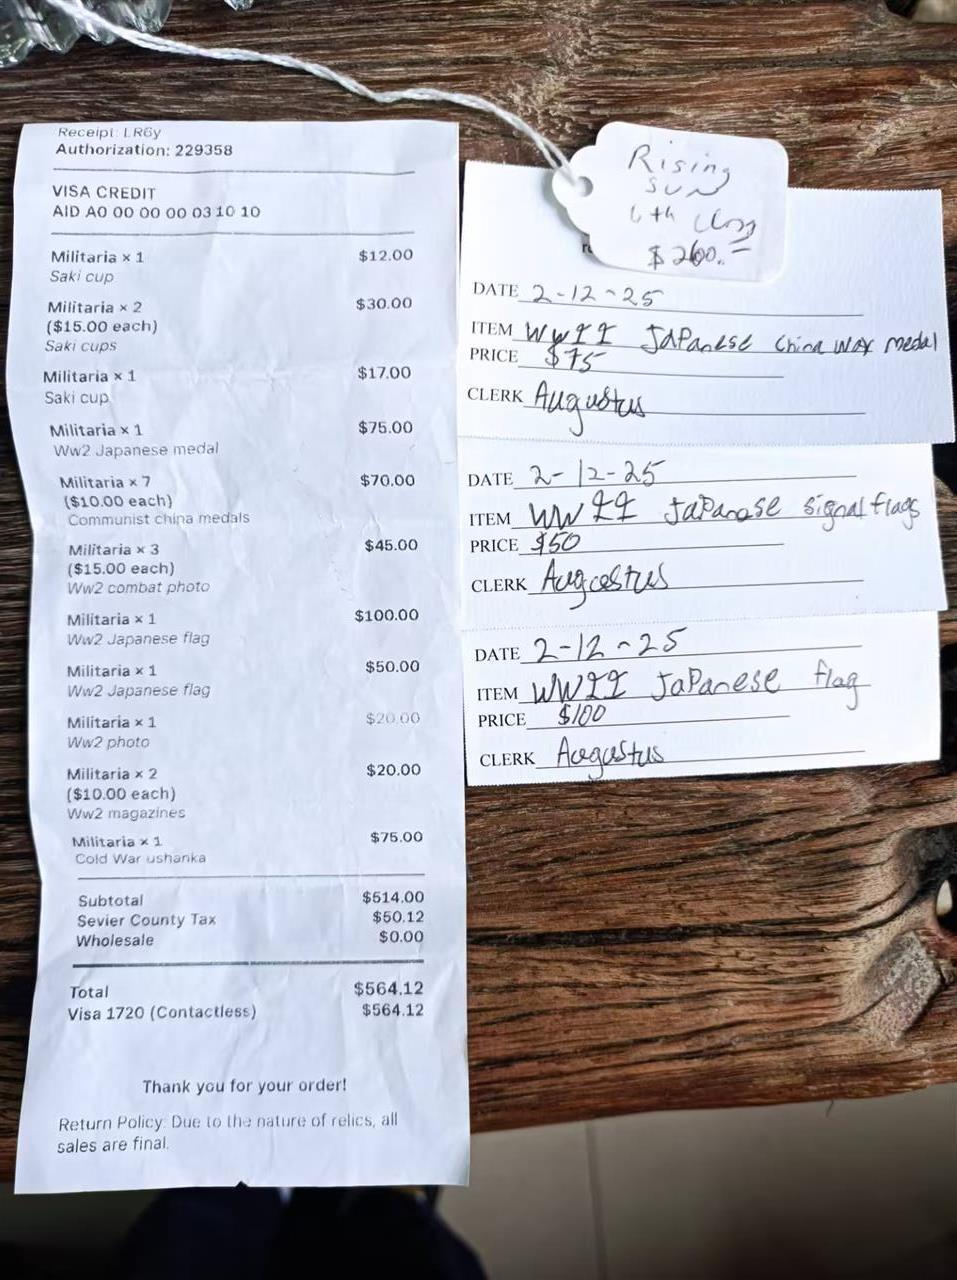 Receipt: LR6y
Authorization: 229358
VISA CREDIT
AID A0 00 00 00 03 10 10
Militaria × 1 $12.00
Saki cup
Militaria × 2 $30.00
($15.00 each)
Saki cups
Militaria × 1 $17.00
Saki cup
Militaria × 1 $75.00
Ww2 Japanese medal
Militaria × 7 $70.00
($10.00 each)
Communist china medals
Militaria × 3 $45.00
($15.00 each)
Ww2 combat photo
Militaria × 1 $100.00
Ww2 Japanese flag
Militaria × 1 $50.00
Ww2 Japanese flag
Militaria × 1 $20.00
Ww2 photo
Militaria × 2 $20.00
($10.00 each)
Ww2 magazines
Militaria × 1 $75.00
Cold War ushanka
Subtotal $514.00
Sevier County Tax $50.12
Wholesale $0.00
Total $564.12
Visa 1720 (Contactless) $564.12
Thank you for your order!
Return Policy: Due to the nature of relics, all
sales are final.
Rising
Sun
6th
$260.=
DATE 2-12-25
ITEM WWII Japanese China war medal
PRICE $75
CLERK Augustus
DATE 2-12-25
ITEM WWII Japanese signal flags
PRICE $50
CLERK Augustus
DATE 2-12-25
ITEM WWII Japanese flag
PRICE $100
CLERK Augustus